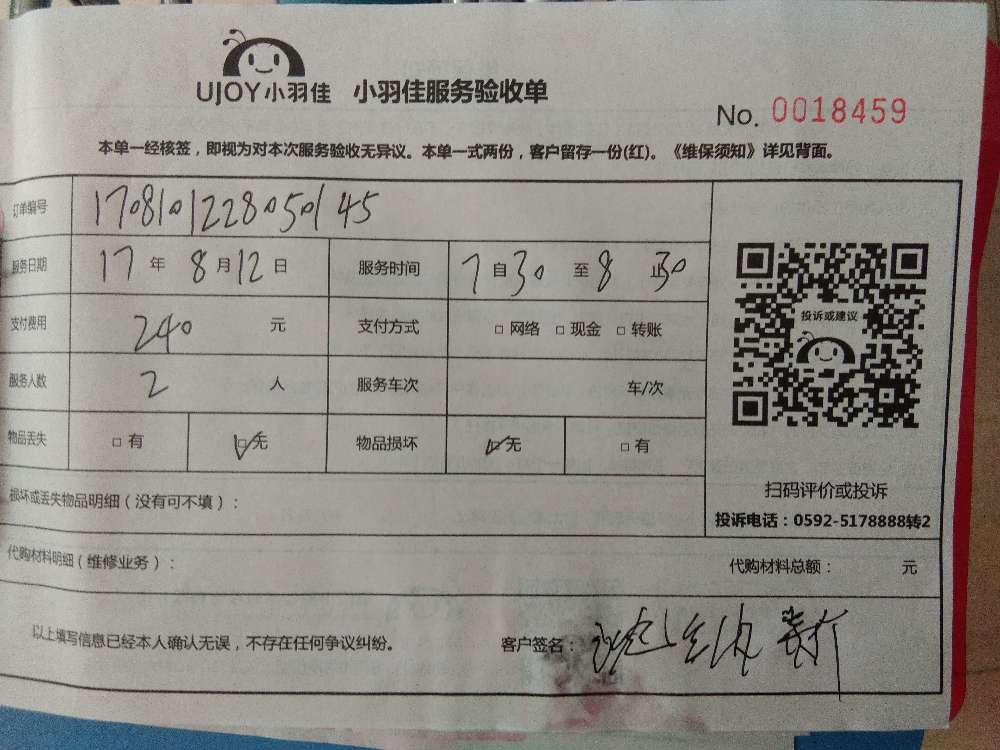 UJOY小羽佳 小羽佳服务验收单
No. 0018459
本单一经核签，即视为对本次服务验收无异议。本单一式两份，客户留存一份(红)。《维保须知》详见背面。
订单编号 1708101228050145
服务日期 17 年 8 月 12 日 服务时间 7 自 30 至 8 止 30
支付费用 240 元 支付方式 □ 网络 □ 现金 □ 转账
服务人数 2 人 服务车次 车/次
物品丢失 □ 有 ☑ 无 物品损坏 ☑ 无 □ 有
投诉或建议
扫码评价或投诉
投诉电话：0592-5178888转2
损坏或丢失物品明细（没有可不填）：
代购材料明细（维修业务）： 代购材料总额： 元
以上填写信息已经本人确认无误，不存在任何争议纠纷。 客户签名：